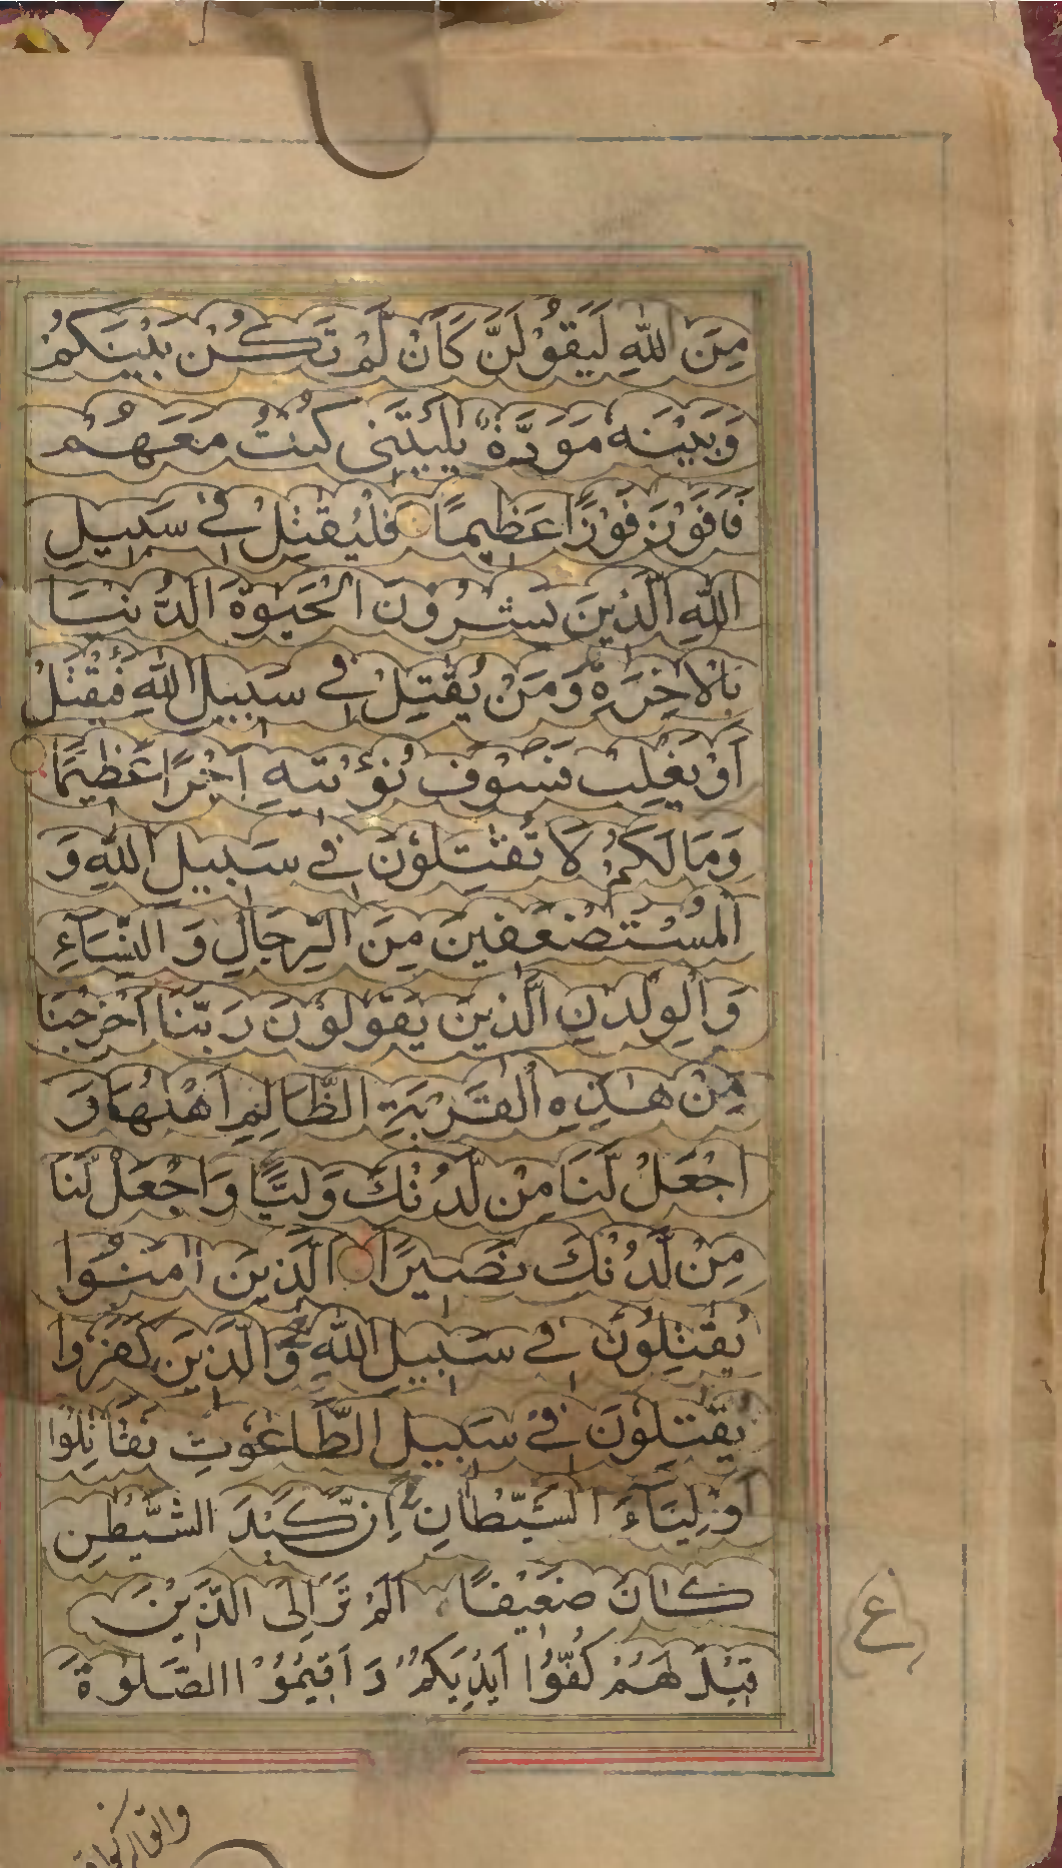 مِنَ اللّٰهِ لَيَقُوْلَنَّ كَاَنْ لَّمْ تَكُنْ بَيْنَكُمْ
وَبَيْنَهٗ مَوَدَّةٌ يّٰلَيْتَنِىْ كُنْتُ مَعَهُمْ
فَاَفُوْزَ فَوْزًا عَظِيْمًا فَلْيُقٰتِلْ فِىْ سَبِيْلِ
اللّٰهِ الَّذِيْنَ يَشْرُوْنَ الْحَيٰوةَ الدُّنْيَا
بِالْاٰخِرَةِ ؕ وَمَنْ يُّقٰتِلْ فِىْ سَبِيْلِ اللّٰهِ فَيُقْتَلْ
اَوْ يَغْلِبْ فَسَوْفَ نُؤْتِيْهِ اَجْرًا عَظِيْمًا
وَمَا لَكُمْ لَا تُقٰتِلُوْنَ فِىْ سَبِيْلِ اللّٰهِ وَ
الْمُسْتَضْعَفِيْنَ مِنَ الرِّجَالِ وَ النِّسَآءِ
وَ الْوِلْدٰنِ الَّذِيْنَ يَقُوْلُوْنَ رَبَّنَا اَخْرِجْنَا
مِنْ هٰذِهِ الْقَرْيَةِ الظَّالِمِ اَهْلُهَا وَ
اجْعَلْ لَّنَا مِنْ لَّدُنْكَ وَلِيًّا وَاجْعَلْ لَّنَا
مِنْ لَّدُنْكَ نَصِيْرًا اَلَّذِيْنَ اٰمَنُوْا
يُقٰتِلُوْنَ فِىْ سَبِيْلِ اللّٰهِ ج وَالَّذِيْنَ كَفَرُوْا
يُقٰتِلُوْنَ فِىْ سَبِيْلِ الطَّاغُوْتِ فَقَاتِلُوْا
اَوْلِيَآءَ الشَّيْطَانِ ج اِنَّ كَيْدَ الشَّيْطٰنِ
كَانَ ضَعِيْفًا اَلَمْ تَرَ اِلَى الَّذِيْنَ
قِيْلَ لَهُمْ كُفُّوْۤا اَيْدِيَكُمْ وَ اَقِيْمُوْا الصَّلٰوةَ
ع